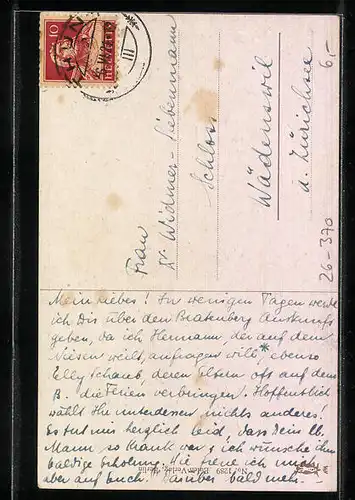 10
THUN
HELVETIA
III
Frau
Dr Widmer-Liebermann
Schloss
Wädenswil
a. Zürichsee
6,-
26-370
Mein Liebes! In wenigen Tagen werde
ich Dir über den Beatenberg Auskunft
geben, da ich Hermann, der auf dem
Niesen weilt, anfragen will, ebenso
Elly Schaub, deren Eltern oft auf dem
B. die Ferien verbringen. Hoffentlich
wählt Ihr unterdessen nichts anderes!
Es tut mir herzlich leid, dass Dein lb.
Mann so krank war & ich wünsche ihm
baldige Erholung. Wie freue ich mich
aber auf Euch! Darüber bald mehr.